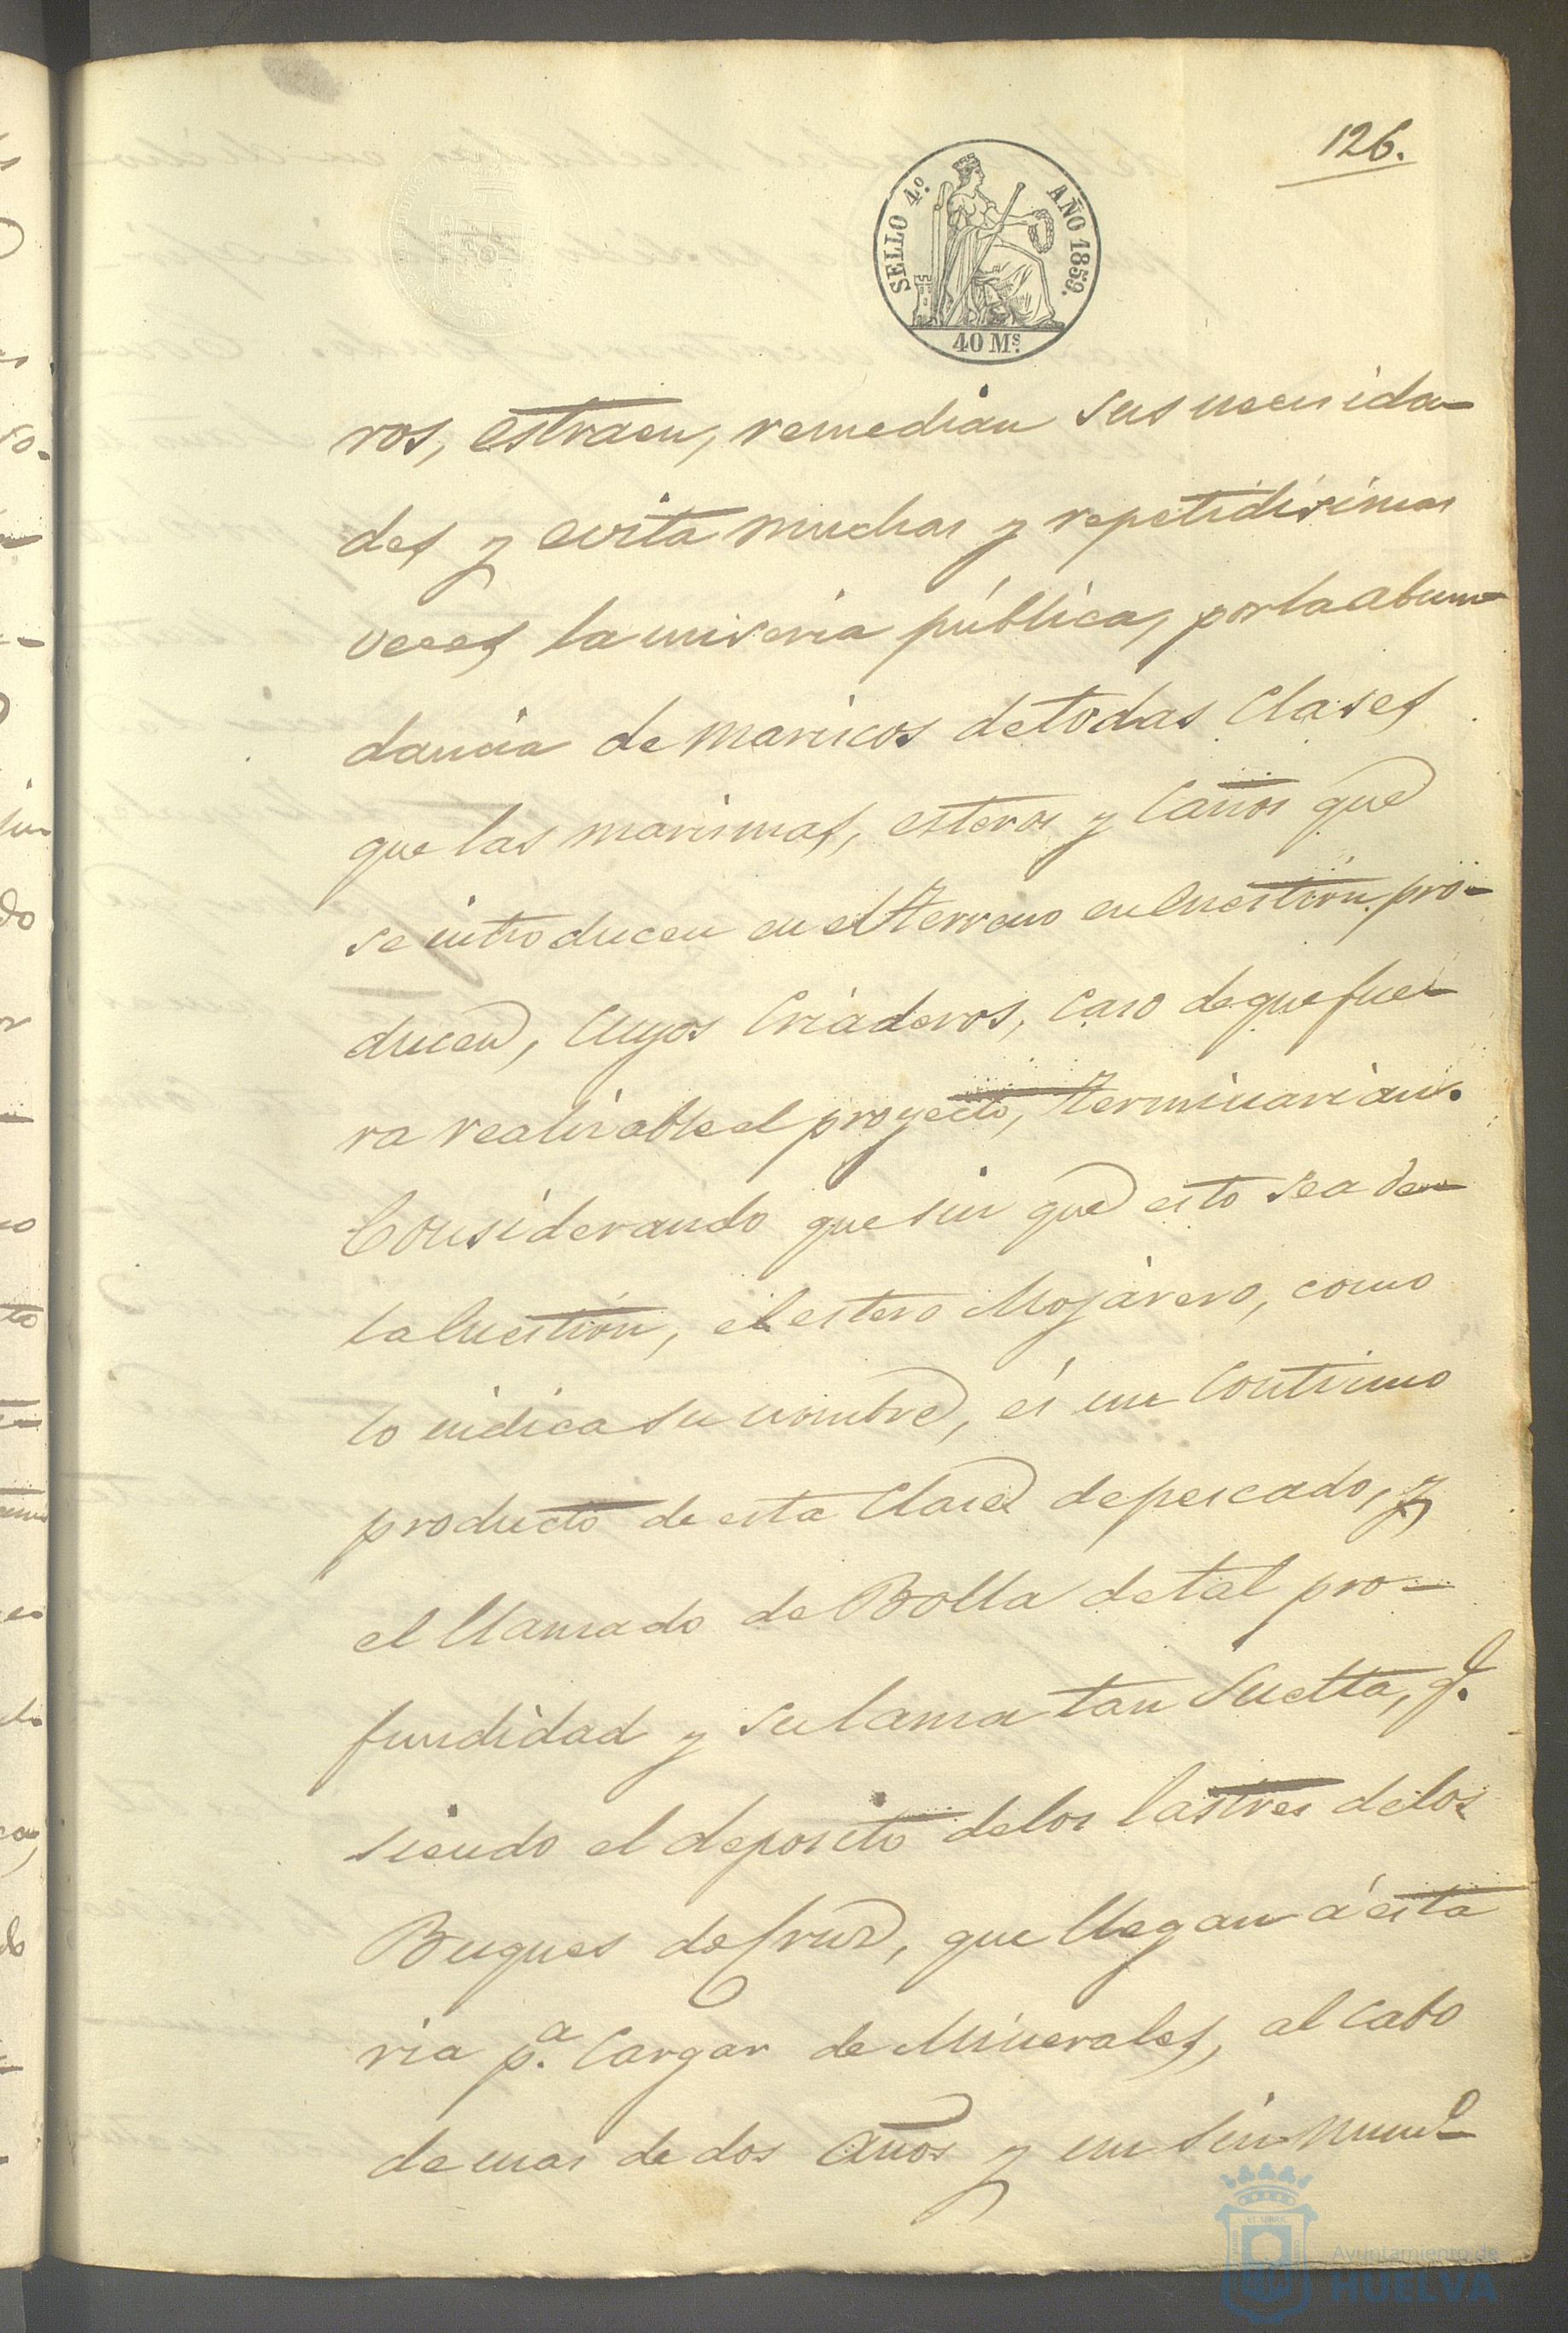 126.
SELLO 4.º AÑO 1859.
40 Ms.
ros, estraen, remedian sus necesida-
des y evita muchas y repetidisimas
veces, la miseria pública, por la abun-
dancia de mariscos de todas clases
que las marismas, esteros y caños que
se introducen en el terreno en cuestión, pro-
ducen, cuyos criaderos, caso de que fue-
ra realisable el proyecto, terminarian.
Considerando que sin que esto sea de
la cuestión, el estero Mojarero, como
lo indica su nombre, és un continuo
producto de esta clase de pescado, y
el llamado de Bolla de tal pro-
fundidad y su lama tan suelta, q.e
siendo el deposito de los lastres de los
Buques de cruz, que llegan á esta
ria p.a cargar de Minerales, al cabo
de mas de dos años y un sin num.o
Ayuntamiento de
HUELVA